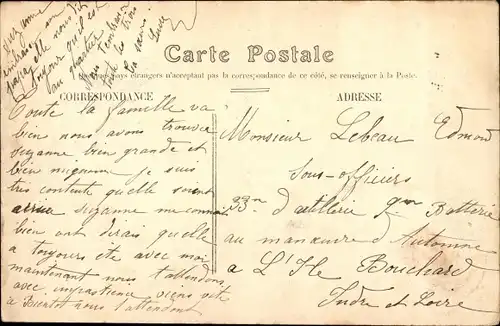 Carte Postale
pays étrangers n'acceptant pas la correspondance de ce côté, se renseigner à la Poste.
CORRESPONDANCE
ADRESSE
Toute la famille va
bien nous avons trouver
suzanne bien grande et
bien mignonne je suis
tres contente quelle soient
arrive suzanne me connait
bien ont dirais quelle
a toujours ete avec moi
maintenant nous t'attendons
avec impatience viens vite
a Bientot nous t'attendont
Monsieur Lebeau Edmond
Sous-officiers
33m d'artillerie Batterie
au manœuvre d'Automne
a L'Ile Bouchard
Indre et Loire
papa elle nous dit
toujours qu'il est
au